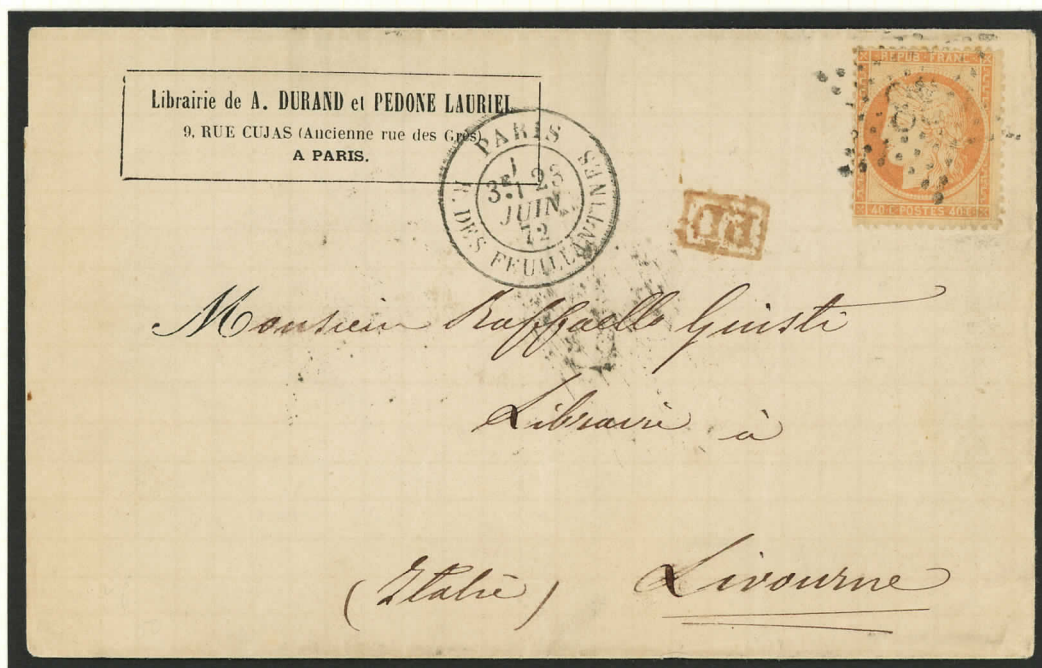 Librairie de A. DURAND et PEDONE LAURIEL
9, RUE CUJAS (Ancienne rue des Grès)
A PARIS.
PARIS
R. DES FEUILLANTINES
3E
28
JUIN
72
REPUB. FRANC.
40 C POSTES 40 C
PD
Monsieur Raffaelle Giusti
Libraire à
(Italie) Livourne